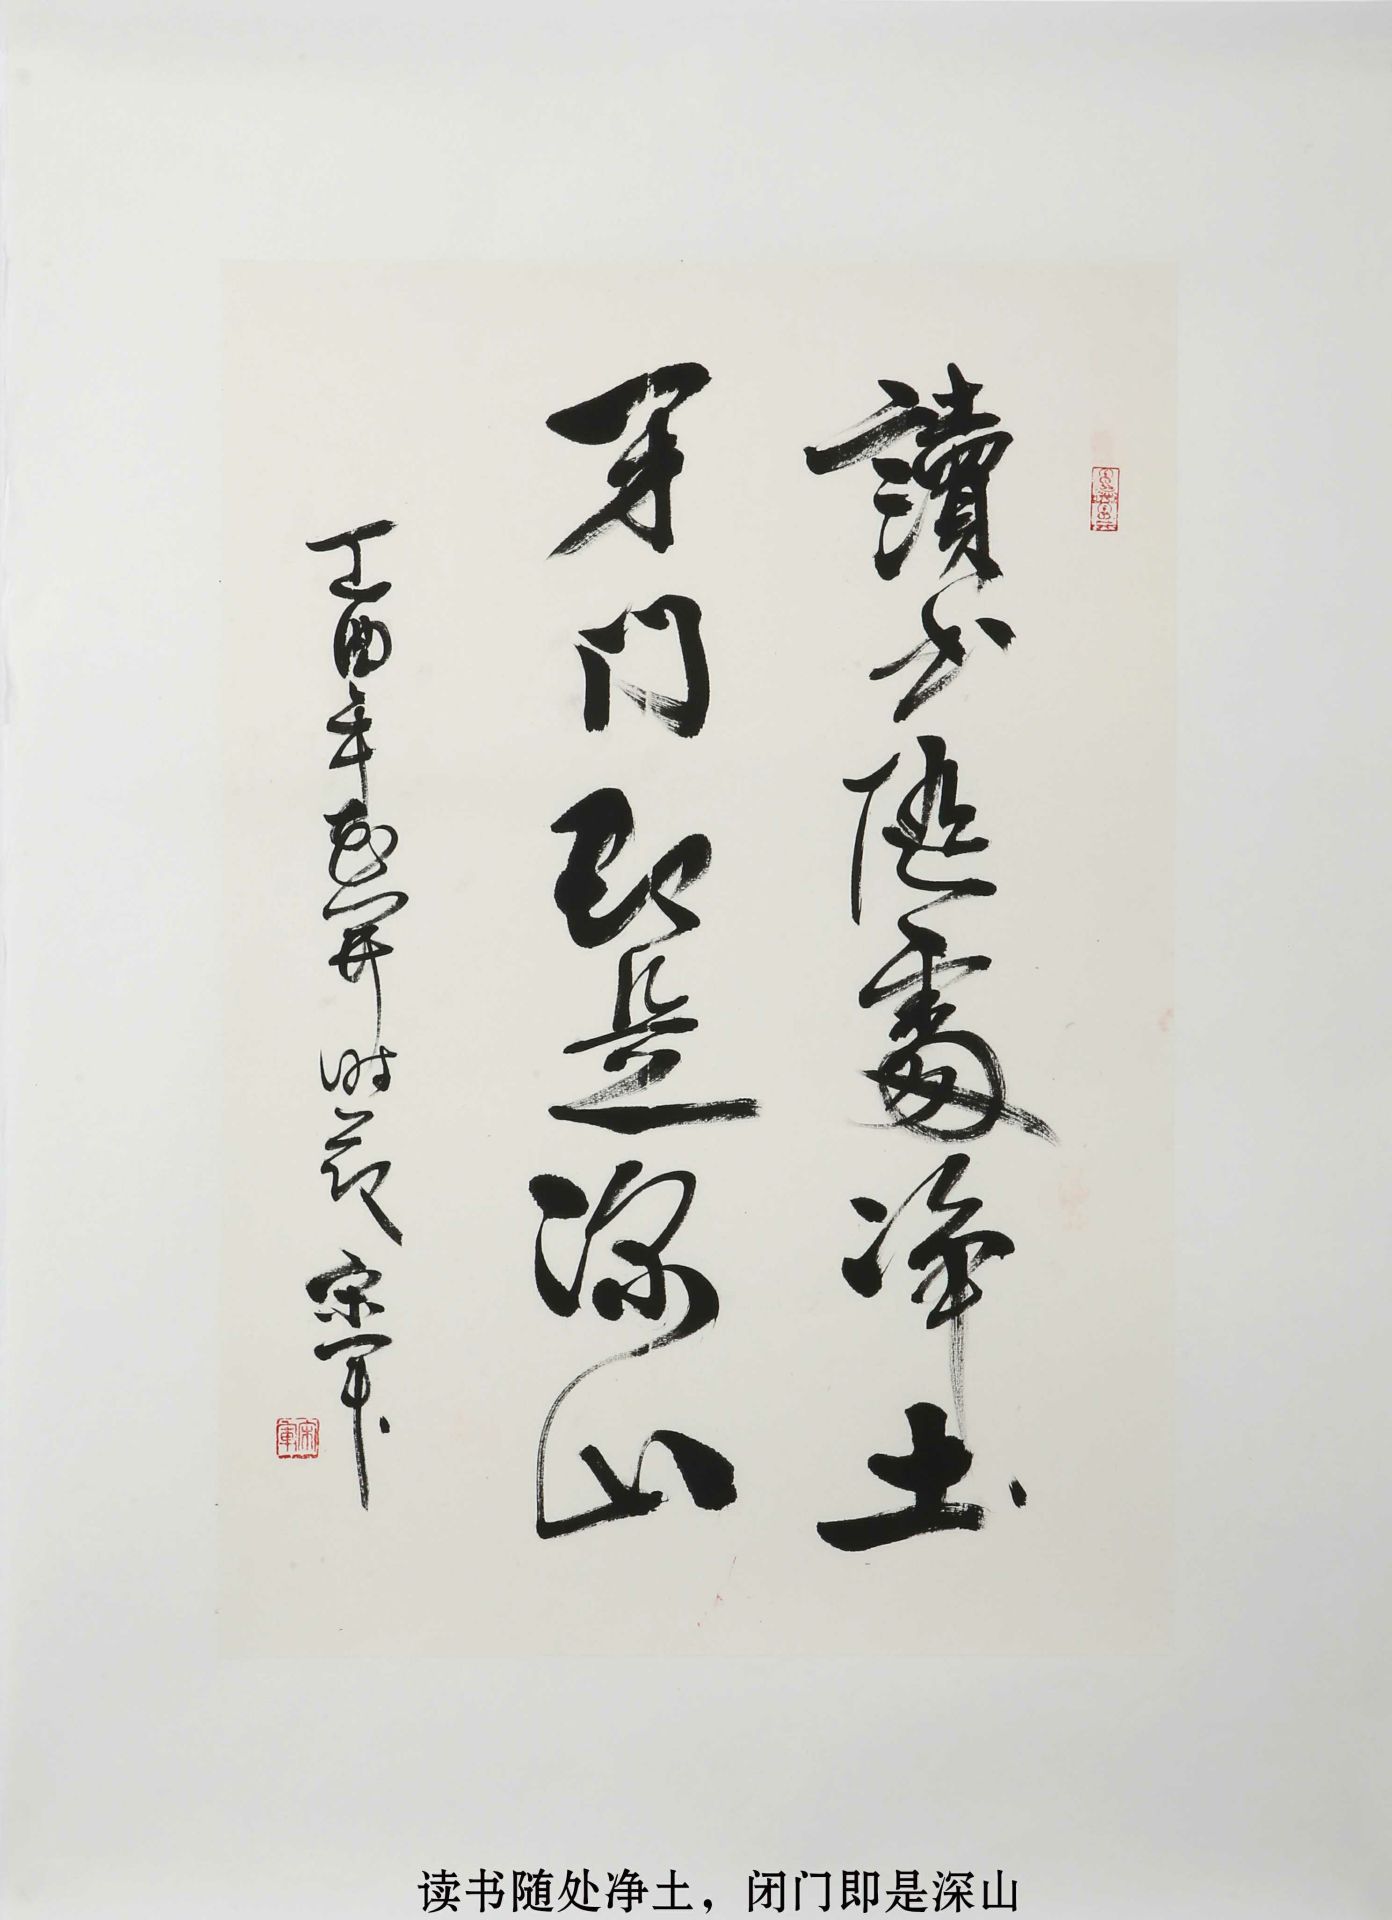 讀书随處净土
闭门即是深山
丁酉年花開时节 宋军
宋軍
读书随处净土，闭门即是深山